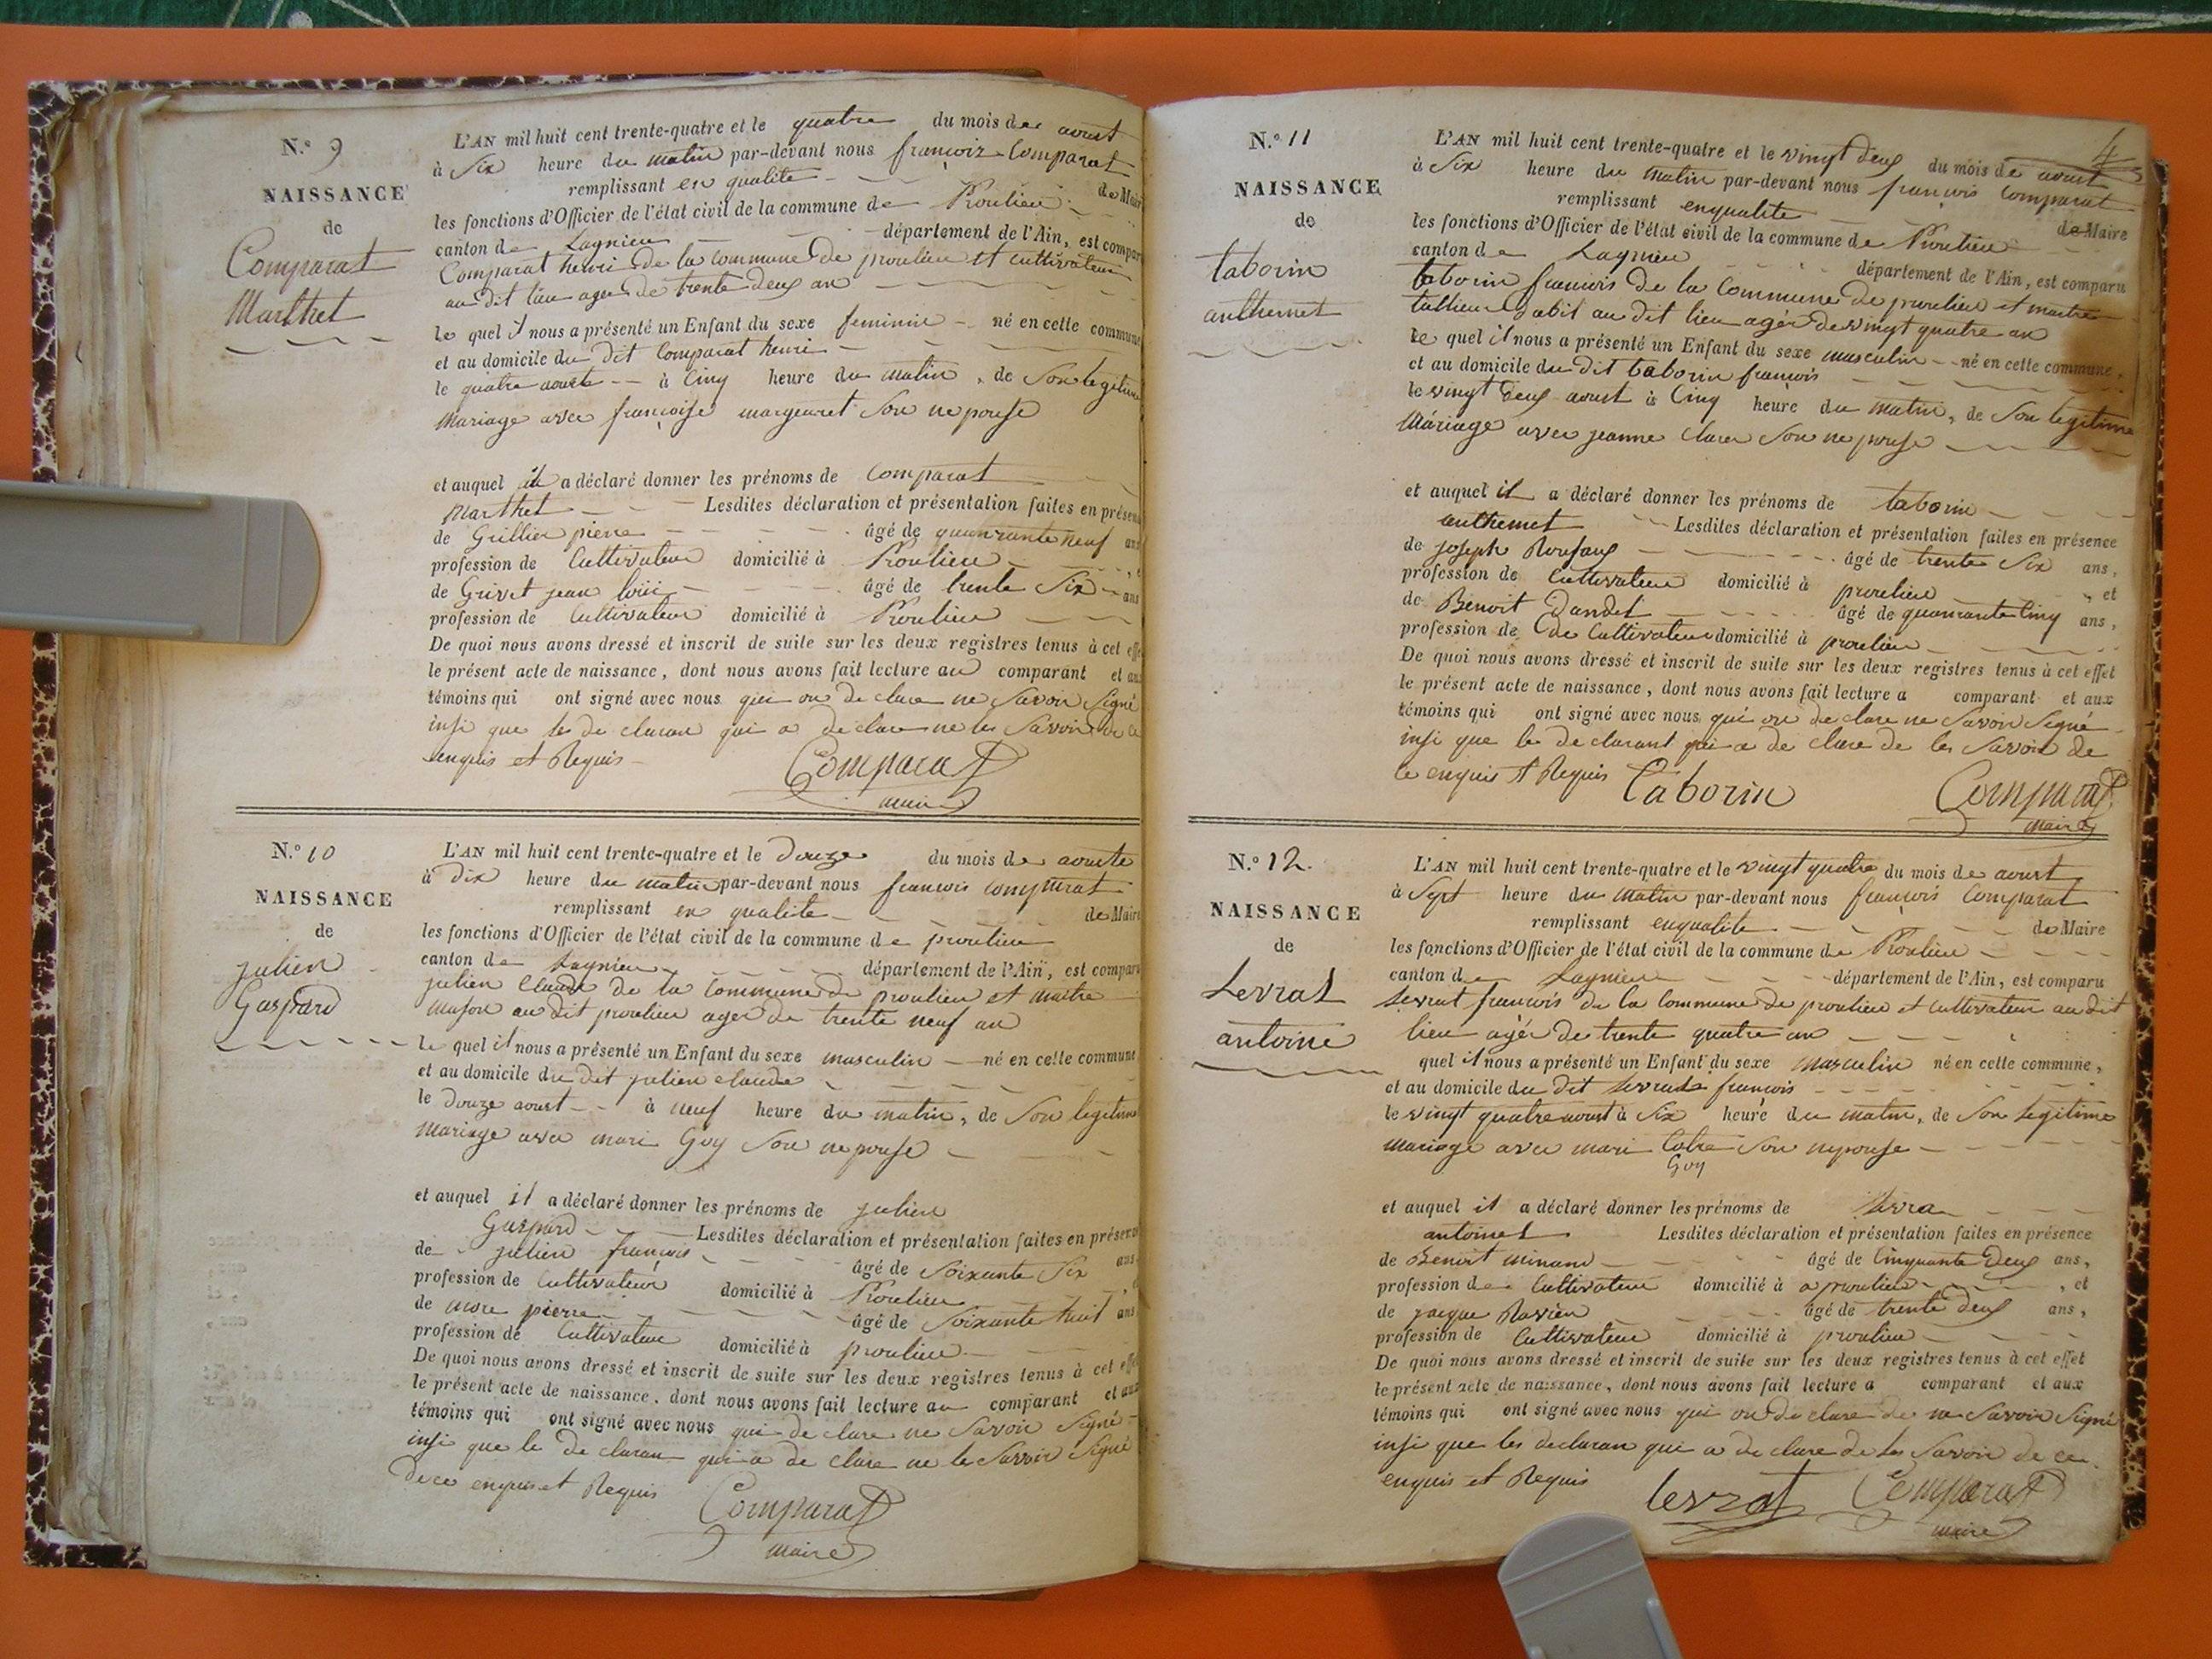 N.° 9
NAISSANCE
de
Comparat
Marthet
L'AN mil huit cent trente-quatre et le quatre du mois de aoust
à Six heure du matin par-devant nous françois Comparat
remplissant en qualite de Maire
les fonctions d'Officier de l'état civil de la commune de Proulieu
canton de Lagnieu département de l'Ain, est compar
Comparat henri de la Commune de proulieu et cultivateur
au dit lieu ager de trente deux an
le quel il nous a présenté un Enfant du sexe feminin né en cette commune
et au domicile du dit Comparat henri
le quatre aoust à Cinq heure du matin, de Son legitime
Mariage avec françoise margeuret Son neponse
et auquel il a déclaré donner les prénoms de Comparat
Marthet Lesdites déclaration et présentation faites en présen
de Grillier pierre âgé de quanrante neuf ans
profession de Cultivateur domicilié à Proulieu
de Grivet jean loüi âgé de trente Six ans
profession de Cultivateur domicilié à Proulieu
De quoi nous avons dressé et inscrit de suite sur les deux registres tenus à cet effe
le présent acte de naissance, dont nous avons fait lecture au comparant et au
témoins qui ont signé avec nous qui on de clare ne Savoir Signé
insi que les de claran qui a de clare ne les Savoir de ce
enquis et Requis
Comparat
maire
N.° 10
NAISSANCE
de
julien
Gaspard
L'AN mil huit cent trente-quatre et le douze du mois de aouste
à dix heure du matin par-devant nous francois comparat
remplissant en qualite de Maire
les fonctions d'Officier de l'état civil de la commune de proulieu
canton de Lagnieu département de l'Ain, est comparu
julien Claude de la Commune de proulieu et maitre
mason au dit proulieu ager de trente neuf an
le quel il nous a présenté un Enfant du sexe masculin né en cette commune
et au domicile du dit julien claude
le douze aoust à neuf heure du matin, de Son legitime
mariage avec mari Guy Son neponse
et auquel il a déclaré donner les prénoms de julien
Gaspard Lesdites déclaration et présentation faites en présen
de julien françois âgé de Soixante Six ans
profession de Cultivateur domicilié à Proulieu
de more pierre âgé de Soixante huit ans
profession de Cultivateur domicilié à proulieu
De quoi nous avons dressé et inscrit de suite sur les deux registres tenus à cet effet
le présent acte de naissance, dont nous avons fait lecture au comparant et aux
témoins qui ont signé avec nous qui de clare ne Savoir Signé
insi que le de claran qui a de clare ne le Savoir Signé
de ce enquis et Requis
Comparat
maire
4
N.° 11
NAISSANCE
de
taborin
anthemet
L'AN mil huit cent trente-quatre et le vingt deux du mois de aoust
à Six heure du matin par-devant nous françois Comparat
remplissant enqualite de Maire
les fonctions d'Officier de l'état civil de la commune de Proulieu
canton de Lagnieu département de l'Ain, est comparu
taborin francois de la Commune de proulieu et maitre
tallieur dabit au dit lieu agér de vingt quatre an
le quel il nous a présenté un Enfant du sexe masculin né en cette commune,
et au domicile du dit taborin françois
le vingt deux aoust à Cinq heure du matin, de Son legitime
Mariage avec jeanne Clare Son neponse
et auquel il a déclaré donner les prénoms de taborin
anthemet Lesdites déclaration et présentation faites en présence
de joseph âgé de trente Six ans,
profession de Cultivateur domicilié à proulieu, et
de Benoit Dandet âgé de quanrante Cinq ans,
profession de de Cultivateur domicilié à proulieu
De quoi nous avons dressé et inscrit de suite sur les deux registres tenus à cet effet
le présent acte de naissance, dont nous avons fait lecture a comparant et aux
témoins qui ont signé avec nous qui on de clare ne Savoir Signé
insi que le de clarant qui a de clare de les Savoir de
ce enquis et Requis
Taborin
Comparat
maire
N.° 12.
NAISSANCE
de
Levrat
antoine
L'AN mil huit cent trente-quatre et le vingt quatre du mois de aoust
à Sept heure du matin par-devant nous françois Comparat
remplissant enqualite de Maire
les fonctions d'Officier de l'état civil de la commune de Proulieu
canton de Lagnieu département de l'Ain, est comparu
Levrat francois de la Commune de proulieu et cultivateur au dit
lieu agér de trente quatre an
quel il nous a présenté un Enfant du sexe masculin né en cette commune,
et au domicile du dit Levrat francois
le vingt quatre aoust à Six heure du matin, de Son legitime
mariage avec mari Son neponse
Guy
et auquel il a déclaré donner les prénoms de Levra
antoinet Lesdites déclaration et présentation faites en présence
de Benoit minand âgé de Cinquante deux ans,
profession de Cultivateur domicilié à a proulieu, et
de jacque Ravien âgé de trente deux ans,
profession de Cultivateur domicilié à proulieu
De quoi nous avons dressé et inscrit de suite sur les deux registres tenus à cet effet
le présent acte de naissance, dont nous avons fait lecture a comparant et aux
témoins qui ont signé avec nous qui on de clare de ne Savoir Signé
insi que les declaran qui a de clare de les Savoir de ce
enquis et Requis
levrat
Comparat
maire